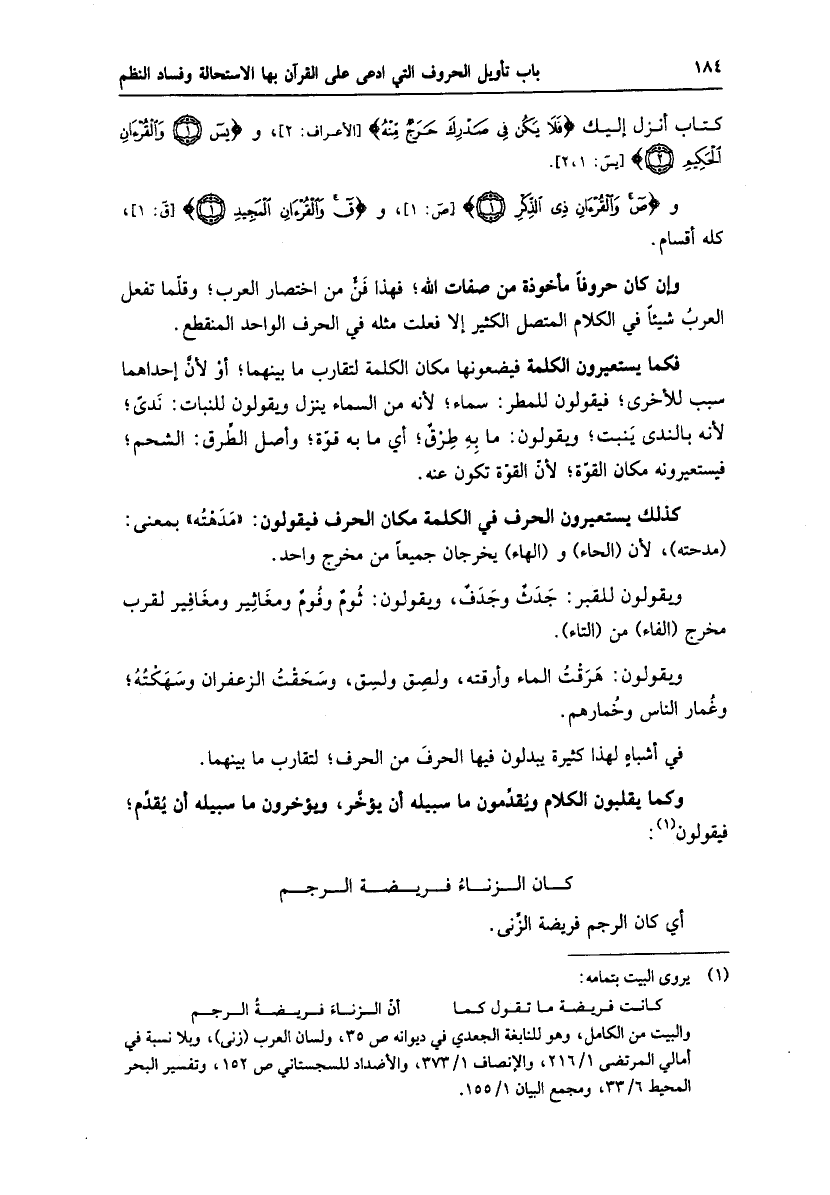 ١٨٤ باب تأويل الحروف التي ادعى على القرآن بها الاستحالة وفساد النظم
كتاب أنزل إليك ﴿فَلَا يَكُن فِى صَدْرِكَ حَرَجٌ مِّنْهُ﴾ [الأعراف: ٢]، و ﴿يسٓ ۝١ وَٱلْقُرْءَانِ
ٱلْحَكِيمِ ۝٢﴾ [يسٓ: ١،٢].
و ﴿صٓ ۚ وَٱلْقُرْءَانِ ذِى ٱلذِّكْرِ ۝١﴾ [صٓ: ١]، و ﴿قٓ ۚ وَٱلْقُرْءَانِ ٱلْمَجِيدِ ۝١﴾ [قٓ: ١]،
كله أقسام.
وإن كان حروفاً مأخوذة من صفات الله؛ فهذا فَنٌّ من اختصار العرب؛ وقلّما تفعل
العربُ شيئاً في الكلام المتصل الكثير إلا فعلت مثله في الحرف الواحد المنقطع.
فكما يستعيرون الكلمة فيضعونها مكان الكلمة لتقارب ما بينهما؛ أوْ لأنَّ إحداهما
سبب للأخرى؛ فيقولون للمطر: سماء؛ لأنه من السماء ينزل ويقولون للنبات: نَدىً؛
لأنه بالندى يَنبت؛ ويقولون: ما بِهِ طِرْقٌ؛ أي ما به قوّة؛ وأصل الطِّرق: الشحم؛
فيستعيرونه مكان القوّة؛ لأنّ القوّة تكون عنه.
كذلك يستعيرون الحرف في الكلمة مكان الحرف فيقولون: «مَدَهْتُه» بمعنى:
(مدحته)، لأن (الحاء) و (الهاء) يخرجان جميعاً من مخرج واحد.
ويقولون للقبر: جَدَثٌ وجَدَفٌ، ويقولون: ثُومٌ وفُومٌ ومغَاثِير ومغَافِير لقرب
مخرج (الفاء) من (الثاء).
ويقولون: هَرَقْتُ الماء وأرقته، ولصِق ولسِق، وسَحَقْتُ الزعفران وسَهَكْتُهُ؛
وغُمار الناس وخُمارهم.
في أشباهٍ لهذا كثيرة يبدلون فيها الحرفَ من الحرف؛ لتقارب ما بينهما.
وكما يقلبون الكلام ويُقدِّمون ما سبيله أن يؤخَّر، ويؤخرون ما سبيله أن يُقدَّم؛
فيقولون(١):
كـان الـزنـاءُ فـريـضـة الـرجـم
أي كان الرجم فريضة الزِّنى.
(١) يروى البيت بتمامه:
كـانـت فـريـضـة مـا تـقـول كـمـا أنّ الـزنـاءَ فـريـضـةُ الـرجـم
والبيت من الكامل، وهو للنابغة الجعدي في ديوانه ص ٣٥، ولسان العرب (زنى)، وبلا نسبة في
أمالي المرتضى ١/ ٢١٦، والإنصاف ١/ ٣٧٣، والأضداد للسجستاني ص ١٥٢، وتفسير البحر
المحيط ٦/ ٣٣، ومجمع البيان ١/ ١٥٥.